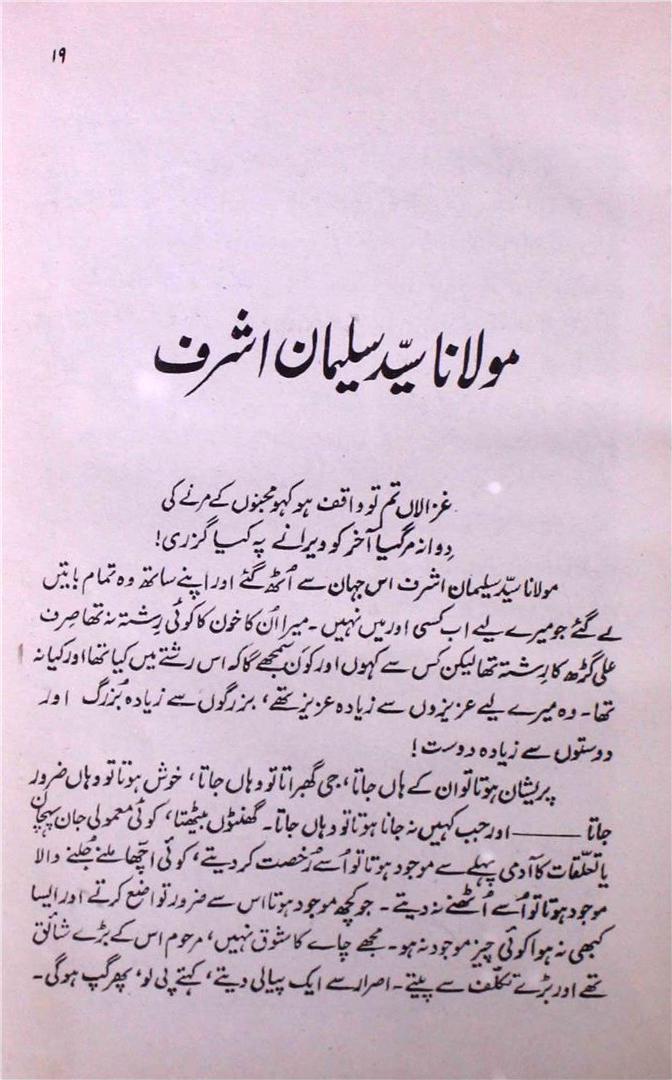 ۱۹
مولانا سیّد سلیمان اشرف
غزالاں تم تو واقف ہو کہو مجنوں کے مرنے کی
دِوانہ مر گیا آخر کو ویرانے پہ کیا گزری!
مولانا سیّد سلیمان اشرف اس جہان سے اُٹھ گئے اور اپنے ساتھ وہ تمام باتیں
لے گئے جو میرے لیے اب کسی اور میں نہیں۔ میرا اُن کا خون کا کوئی رِشتہ نہ تھا صِرف
علی گڑھ کا رِشتہ تھا لیکن کس سے کہوں اور کون سمجھے گا کہ اس رشتے میں کیا تھا اور کیا نہ
تھا۔ وہ میرے لیے عزیزوں سے زیادہ عزیز تھے، بزرگوں سے زیادہ بُزرگ اور
دوستوں سے زیادہ دوست!
پریشان ہوتا تو ان کے ہاں جاتا، جی گھبراتا تو وہاں جاتا، خوش ہوتا تو وہاں ضرور
جاتا ——— اور جب کہیں نہ جانا ہوتا تو وہاں جاتا۔ گھنٹوں بیٹھتا، کوئی معمولی جان پہچان
یا تعلّقات کا آدمی پہلے سے موجود ہوتا تو اُسے رُخصت کر دیتے، کوئی اچھّا ملنے جُلنے والا
موجود ہوتا تو اُسے اُٹھنے نہ دیتے۔ جو کچھ موجود ہوتا اس سے ضرور تواضع کرتے اور ایسا
کبھی نہ ہوا کوئی چیز موجود نہ ہو۔ مجھے چاے کا شوق نہیں، مرحوم اس کے بڑے شائق
تھے اور بڑے تکلّف سے پیتے۔ اصرار سے ایک پیالی دیتے، کہتے پی لو، پھر گپ ہوگی۔